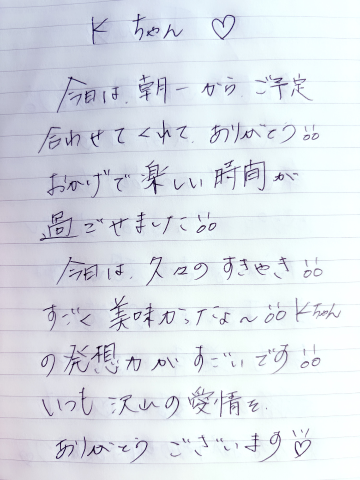 Kちゃん ♡
今日は、朝一から、ご予定
合わせてくれて、ありがとう!!
おかげで楽しい時間が
過ごせました!!
今日は、久々のすきやき!!
すごく美味かったよ〜!!Kちゃん
の発想力がすごいです!!
いつも沢山の愛情を、
ありがとうございます!!♡